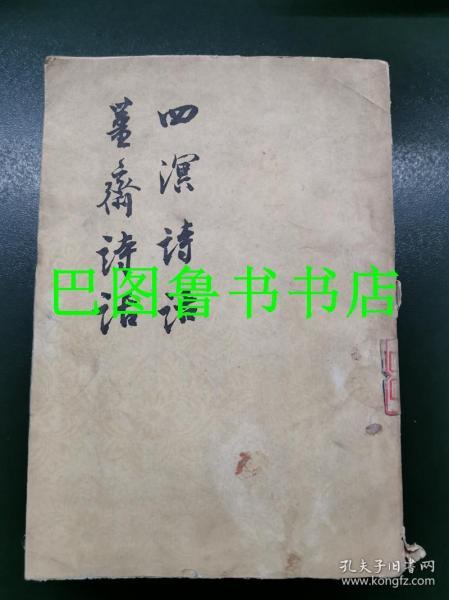 四溟詩話
薑齋詩話
巴图鲁书书店
孔夫子旧书网
www.kongfz.com